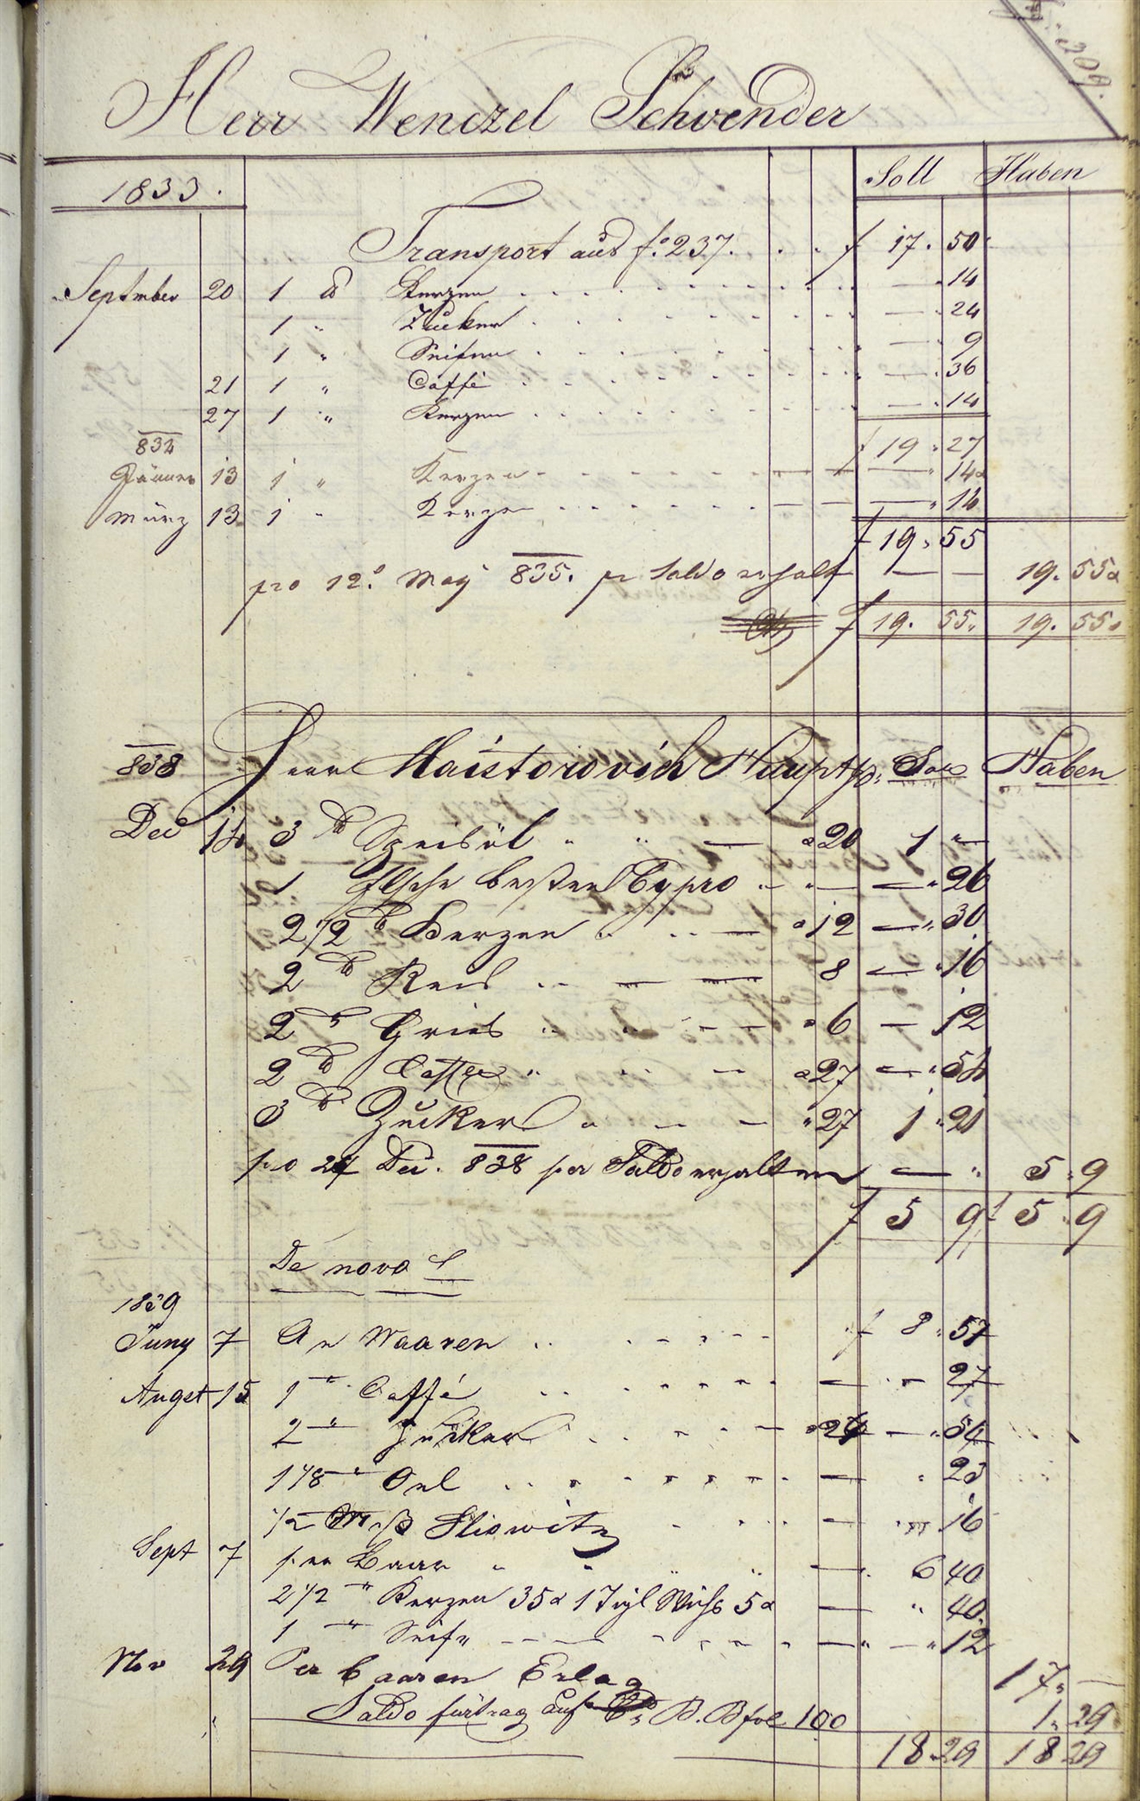 fo: 309.
Herr Wenczel Schvender
1833. Soll Haben
Transport aus fo. 237. . . f 17. 50
September 20 1 ℔ Kerzen — " 14
1 " Zucker — " 24
1 " Seifen — " 9
21 1 " Caffé — " 36
27 1 " Kerzen — " 14
f 19 " 27
834
Jänner 13 1 " Kerzen — " 14
März 13 1 " Kerzen — " 14
f 19 " 55
pro 12o. May 835. pr Saldo erhalt — — 19. 55
f 19. 55. 19. 55.
838 Herr Maistorovich Hauptm: Soll Haben
Dec 14 3 ℔ Speisöl " " — a 20 1 " —
1 Flsche besten Cypro — " 26
2 1/2 ℔ Kerzen — a 12 — " 30
2 ℔ Reis — 8 — " 16
2 ℔ Gries — a 6 — 12
2 ℔ Caffee — a 27 — " 54
3 ℔ Zucker — " 27 1 " 21
pro 24 Dec. 838 per Saldo erhalten — " 5 " 9
f 5 9 f 5 " 9
De novo
1839
Juny 7 An Waaren f 8 " 57
Augst 15 1 " Caffé — " 27
2 " Zucker a 27 — " 54
1 1/8 " Oel — " 23
1/2 Mß Sliowitz — " 16
Sept 7 per Baar — 6 40
2 1/2 " Kerzen 35 x 1 Tigl Wichs 5 x — " 40
1 " Seife — " 12
Nov 29 Per baaren Erlag 17 " —
Saldo fürtrag auf B. B fol 100 1 " 29
18 " 29 18 29